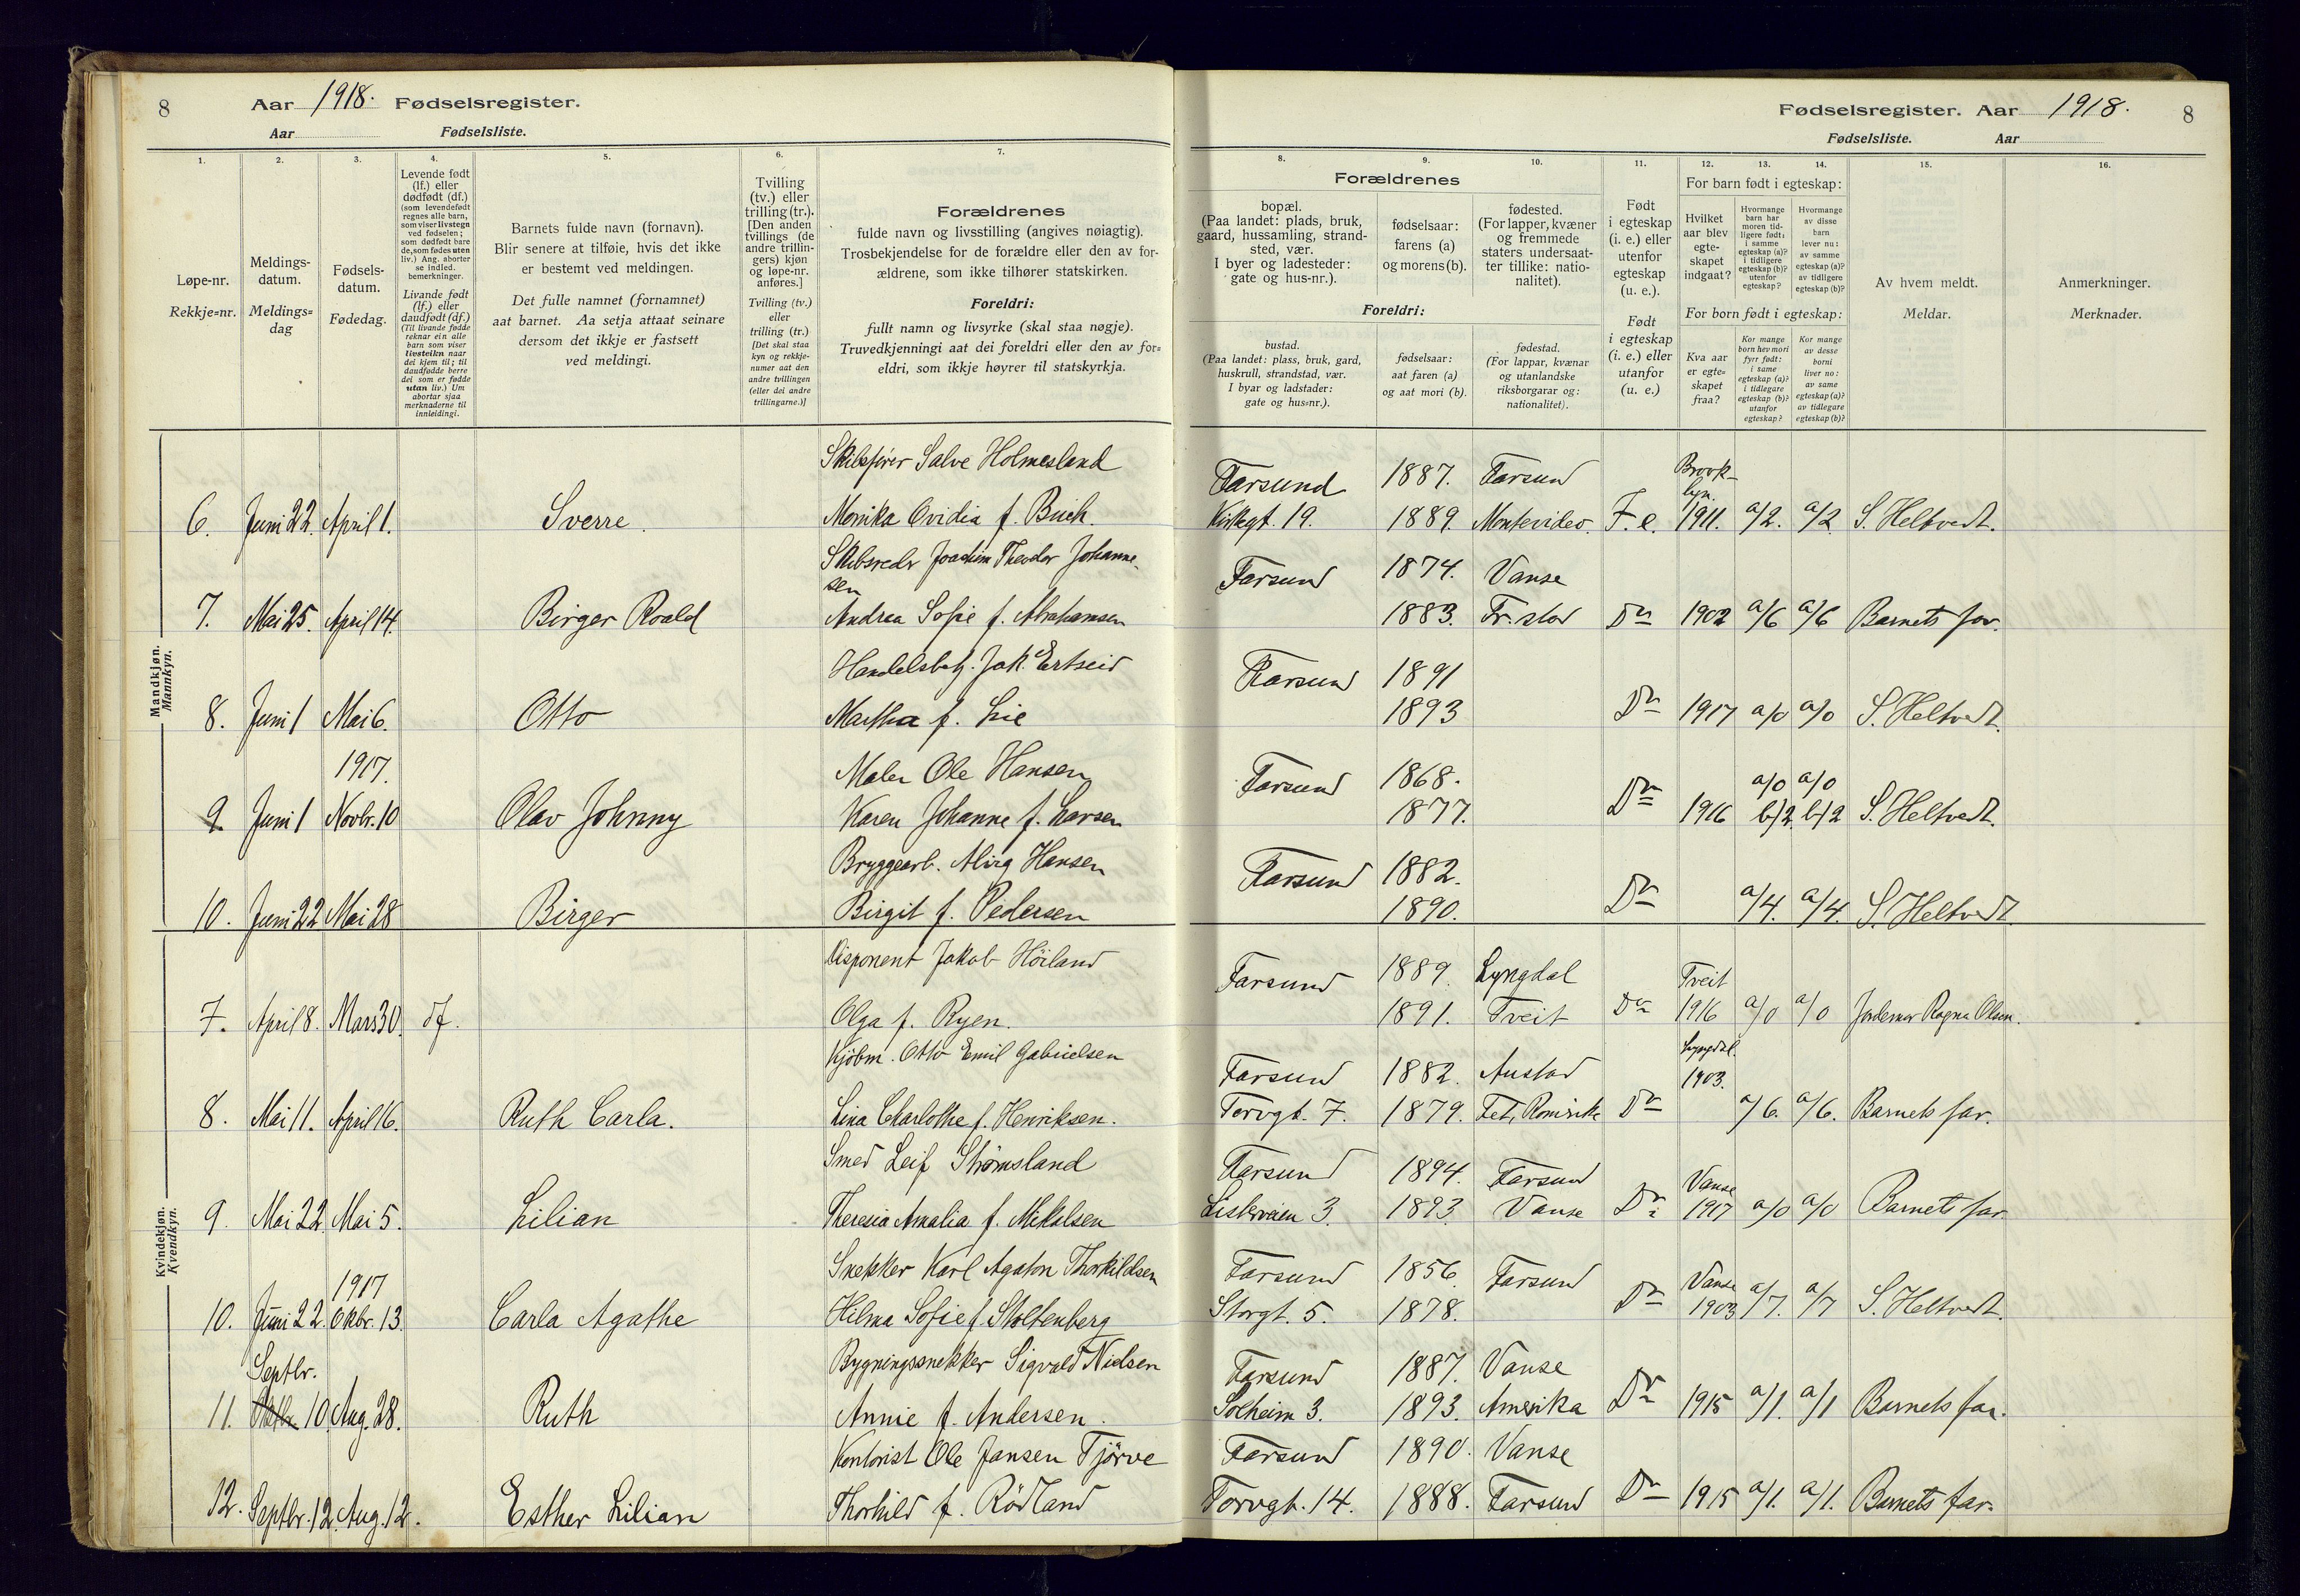 8 Aar 1918. Fødselsregister.
Aar Fødselsliste.
1. 2. 3. 4. 5. 6. 7.
Løpe-nr.
Rekkje=nr.
Meldings-
datum.
Meldings=
dag
Fødsels-
datum.
Fødedag.
Levende født
(lf.) eller
dødfødt (df.)
(som levendefødt
regnes alle barn,
som viser livstegn
ved fødselen;
som dødfødt bare
de, som fødes uten
liv.) Ang. aborter
se indled.
bemerkninger.
Livande født
(lf.) eller
daudfødt (df.)
(Til livande fødde
reknar ein alle
barn som viser
livsteikn naar
dei kjem til; til
daudfødde berre
dei som er fødde
utan liv.) Um
abortar sjaa
merknaderne til
innleidingi.
Barnets fulde navn (fornavn).
Blir senere at tilføie, hvis det ikke
er bestemt ved meldingen.
Det fulle namnet (fornamnet)
aat barnet. Aa setja attaat seinare
dersom det ikkje er fastsett
ved meldingi.
Tvilling
(tv.) eller
trilling (tr.).
[Den anden
tvillings (de
andre trillin-
gers) kjøn
og løpe-nr.
anføres.]
Tvilling (tv.)
eller
trilling (tr.)
[Det skal staa
kyn og rekkje-
numer aat den
andre tvillingen
(eller dei andre
trillingarne.)]
Forældrenes
fulde navn og livsstilling (angives nøiagtig).
Trosbekjendelse for de forældre eller den av for-
ældrene, som ikke tilhører statskirken.
Foreldri:
fullt namn og livsyrke (skal staa nøgje).
Truvedkjenningi aat dei foreldri eller den av for=
eldri, som ikkje høyrer til statskyrkja.
Fødselsregister. Aar 1918. 8
Fødselsliste. Aar
8. 9. 10. 11. 12. 13. 14. 15. 16.
Forældrenes
bopæl.
(Paa landet: plads, bruk,
gaard, hussamling, strand-
sted, vær.
I byer og ladesteder:
gate og hus-nr.).
fødselsaar:
farens (a)
og morens (b).
fødested.
(For lapper, kvæner
og fremmede
staters undersaat-
ter tillike: natio-
nalitet).
Foreldri:
bustad.
(Paa landet: plass, bruk, gard,
huskrull, strandstad, vær.
I byar og ladstader:
gate og hus=nr.).
fødselsaar:
aat faren (a)
og aat mori (b).
fødestad.
(For lappar, kvænar
og utanlandske
riksborgarar og:
nationalitet).
Født
i egteskap
(i. e.) eller
utenfor
egteskap
(u. e.).
Født
i egteskap
(i. e.) eller
utanfor
(u. e.)
For barn født i egteskap:
Hvilket
aar blev
egte-
skapet
indgaat?
Hvormange
barn har
moren tid-
ligere født:
i samme
egteskap (a)?
i tidligere
egteskap (b)?
utenfor
egteskap?
Hvormange
av disse
barn
lever nu:
av samme
egteskap (a)?
av tidligere
egteskap (b)?
For born født i egteskap:
Kva aar
er egte=
skapet
fraa?
Kor mange
born hev mori
fyrr født:
i same
egteskap (a)?
i tidlegare
egteskap (b)?
utanfor
egteskap?
Kor mange
av desse
borni
liver no:
av same
egteskap (a)?
av tidlegare
egteskap (b)?
Av hvem meldt.
Meldar.
Anmerkninger.
Merknader.
Mandkjøn.
Mannkyn.
Skibsfører Salve Holmesland Farsund 1887. Farsund Brook-
lyn.
6. Juni 22. April 1. Sverre. Monika Ovidia f. Buch. Kirkegt. 19. 1889. Montevideo. F. e. 1911. a/2. a/2 S. Heltvedt.
Skibsredr Joachim Theodor Johanne-
sen Farsund 1874. Vanse
7. Mai 25. April 14. Birger Roald Andrea Sofie f. Abrahamsen 1883. Fr.stad Do 1902 a/6 a/6 Barnets far.
Handelsbetj. Jak. Ertseid Farsund 1891
8. Juni 1 Mai 6. Otto Martha f. Lie 1893 Do 1917 a/0 a/0 S. Heltvedt.
1917. Maler Ole Hansen Farsund 1868. a/0 a/0
9. Juni 1 Novbr. 10 Olav Johnny Karen Johanne f. Larsen 1877. Do 1916 b/2. b/2 S. Heltvedt.
Bryggearb. Hansen Farsund 1882.
10. Juni 22 Mai 28 Birger Birgit f. Pedersen 1890. Do a/4. a/4. S. Heltvedt.
Kvindekjøn.
Kvendkyn.
Disponent Jakob Höiland Farsund 1889. Lyngdal Tveit
7. April 8. Mars 30. df. Olga f. Ryen. 1891. Tveit Do 1916 a/0 a/0 Jordemor Ragna Olsen.
Kjöbm. Otto Emil Gabrielsen Farsund 1882. Austad Lyngdal.
1903.
8. Mai 11. April 16. Ruth Carla. Lina Charlothe f. Henriksen. Torvgt. 7. 1879. Fet, Romerike Do a/6. a/6. Barnets far.
Smed Leif Strömsland Farsund 1894. Farsund Vanse
9. Mai 22. Mai 5. Lilian Theresia Amalia f. Mikalsen Listerveien 3. 1893. Vanse Do 1917 a/0 a/0 Barnets far.
1917 Snekker Karl Agaton Thorkildsen Farsund 1856. Farsund Vanse
10. Juni 22. Oktbr. 13. Carla Agathe Hilma Sofie f. Stoltenberg Storgt. 5. 1878. Do 1903 a/7. a/7 S. Heltvedt.
Septbr. Bygningssnekker Sigvald Nielsen Farsund 1887. Vanse
11. Oktbr. 10. Aug. 28. Ruth Annie f. Andersen. Solheim 3. 1893. Amerika Do 1915 a/1. a/1 Barnets far.
Kontorist Ole Jansen Tjörve Farsund 1890. Vanse
12. Septbr. 12. Aug. 12. Esther Lilian Thorhild f. Rödland Torvgt. 14. 1888. Farsund Do 1915 a/1. a/1. Barnets far.